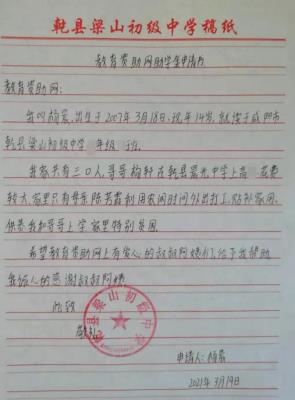 乾县梁山初级中学稿纸
教育资助网助学金申请书
教育资助网：
我叫杨 出生于2007年3月18日，现年14岁，就读于咸阳市
乾县梁山初级中学 年级 班。
我家共有三口人，哥哥杨轩在乾县 光中学上高 花费
较大，家里只有母亲陈 霞利用农闲时间外出打工，贴补家用，
供养我和哥哥上学，家里特别贫困。
希望教育资助网上有爱心的叔叔阿姨们，给予我帮助
我诚人的感谢叔叔阿姨
此致
敬礼
乾县梁山初级中学
申请人：杨
2021年3月19日